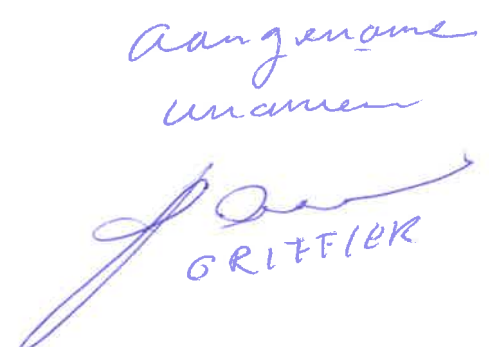 aangenome
unaniem
GRIFFIER